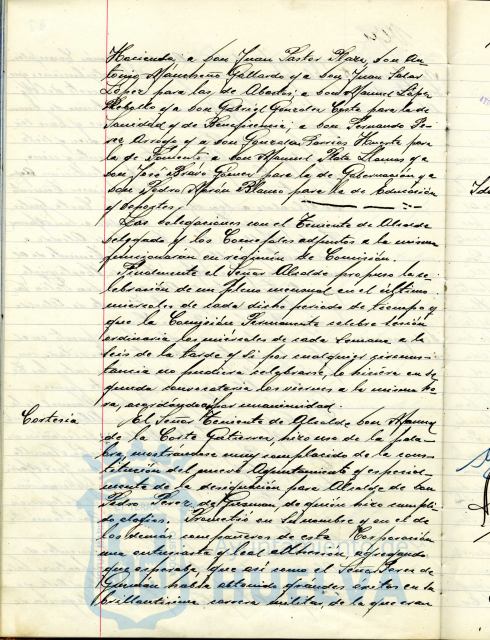 Hacienda; a Don Juan Pastor Plaza, Don An-
tonio Mancheño Gallardo y a Don Juan Salas
López para las de Abastos; a Don Manuel López
Rebollo y a Don Gabriel González Corte para la de
Sanidad y de Beneficencia; a Don Fernando Pé-
rez Arroyo y a Don Gonzalo Barrios Huerte para
la de Fomento; a Don Manuel Plata Llamas y a
Don José Bravo Gómez para la de Gobernación y a
Don Pedro Morón Blanco para la de Educación
y Deportes.
Las delegaciones con el Teniente de Alcalde
delegado y los Concejales adjuntos a la misma
funcionarán en régimen de Comisión.
Finalmente el Señor Alcalde propuso la ce-
lebración de un pleno mensual en el último
miércoles de cada dicho periodo de tiempo y
que la Comisión Permanente celebre sesión
ordinaria los miércoles de cada semana a la
seis de la tarde y si por cualquier circuns-
tancia no pudiera celebrarse, lo hiciera en se-
gunda convocatoria los viernes a la misma ho-
ra, acordándose así por unanimidad.
Cortesía
El Señor Teniente de Alcalde Don Manuel
de la Corte Gutiérrez, hizo uso de la pala-
bra, mostrándose muy complacido de la cons-
titución del nuevo Ayuntamiento y especial-
mente de la designación para Alcalde de Don
Pedro Pérez de Guzmán, de quién hizo cumpli-
do elogios. Prometió en su nombre y en el de
los demás compañeros de esta Corporación
una entusiasta y leal adhesión, agregando
que esperaba, que así como el Señor Pérez de
Guzmán había obtenido grandes éxitos en la
brillantísima carrera militar, de la que eran
HUELVA